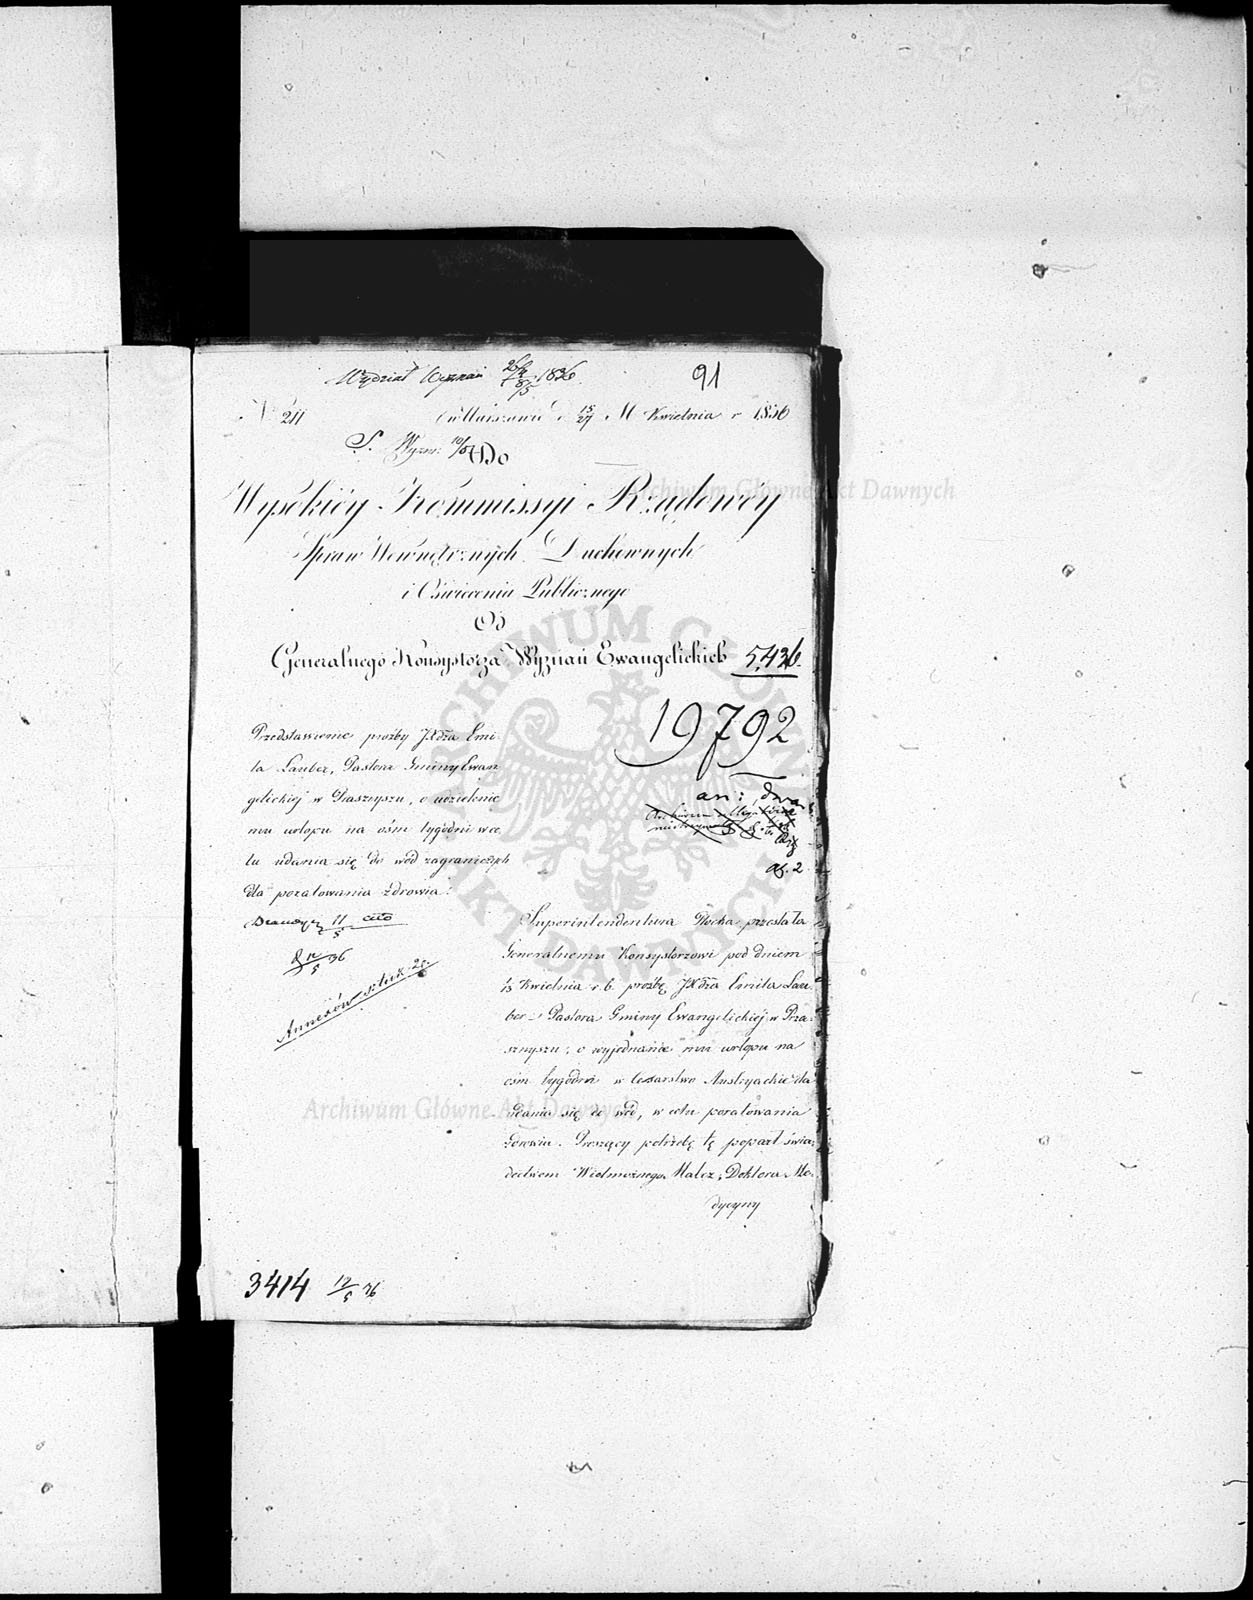 Wydział Wyznań 1836
91
No 211
w Warszawie d. 15/27 M Kwietnia r 1836
Do
Wysokiéy Kommissyi Rządowéy
Spraw Wewnętrznych Duchownych
i Oświecenia Publicznego
Od
Generalnego Konsystorza Wyznań Ewangelickich 5,436.
19792
Przedstawienie prośby JXdza Emi-
la Lauber, Pastora Gminy Ewan-
gelickiej w Przasnyszu, o udzielenie
mu urlopu na ośm tygodni w ce-
lu udania się do wód zagranicznych
dla poratowania zdrowia.
11/5 cito
12/5 36
Annexów sztuk 2
an: dwa
af. 2
Superintendentura Płocka przesłała
Generalnemu Konsystorzowi pod dniem
13 Kwietnia r. b. prośbę JXdza Emila Lau-
ber Pastora Gminy Ewangelickiej w Prza-
snyszu, o wyjednanie mu urlopu na
ośm tygodni w Cesarstwo Austryackie dla
udania się do wód, w celu poratowania
zdrowia. Proszący potrzebę tę poparł świa-
dectwem Wielmożnego Malcz, Doktora Me-
dycyny
3414 12/5 36
Archiwum Główne Akt Dawnych
Archiwum Główne Akt Dawnych
ARCHIWUM GŁÓWNE AKT DAWNYCH